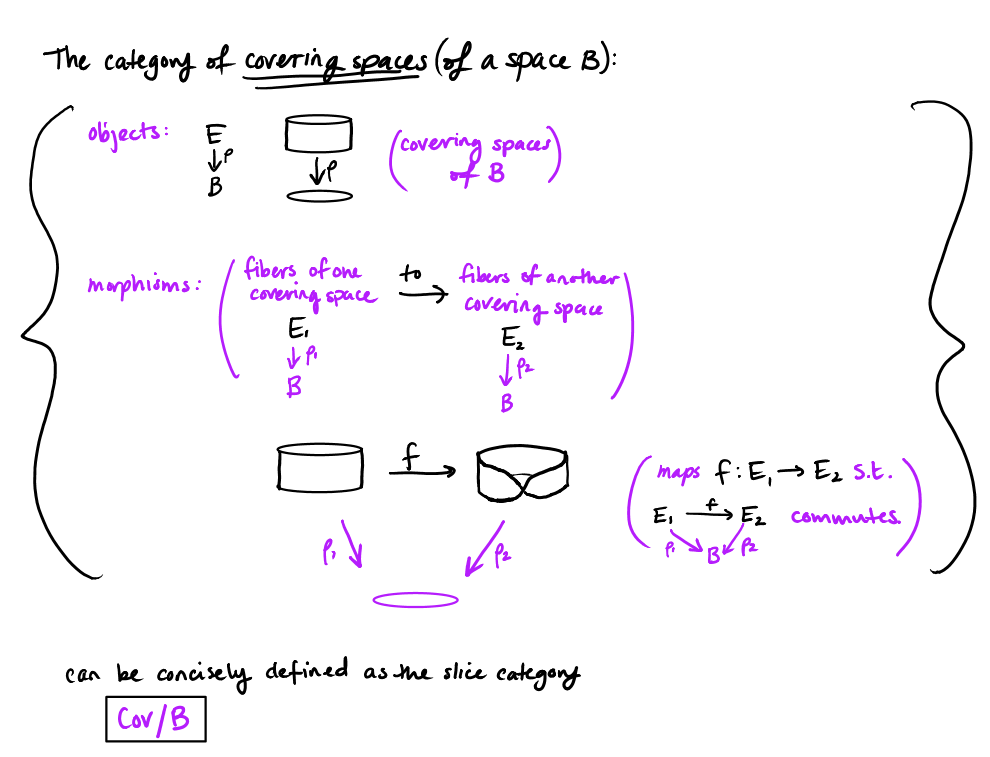 The category of covering spaces (of a space B):
objects: E
p
B
p
(covering spaces
of B)
morphisms: (fibers of one
covering space
E₁
p₁
B
to
fibers of another
covering space)
E₂
p₂
B
f
p₁
p₂
(maps f: E₁ → E₂ s.t.
E₁ f→ E₂ commutes.)
p₁ B p₂
can be concisely defined as the slice category
Cov/B